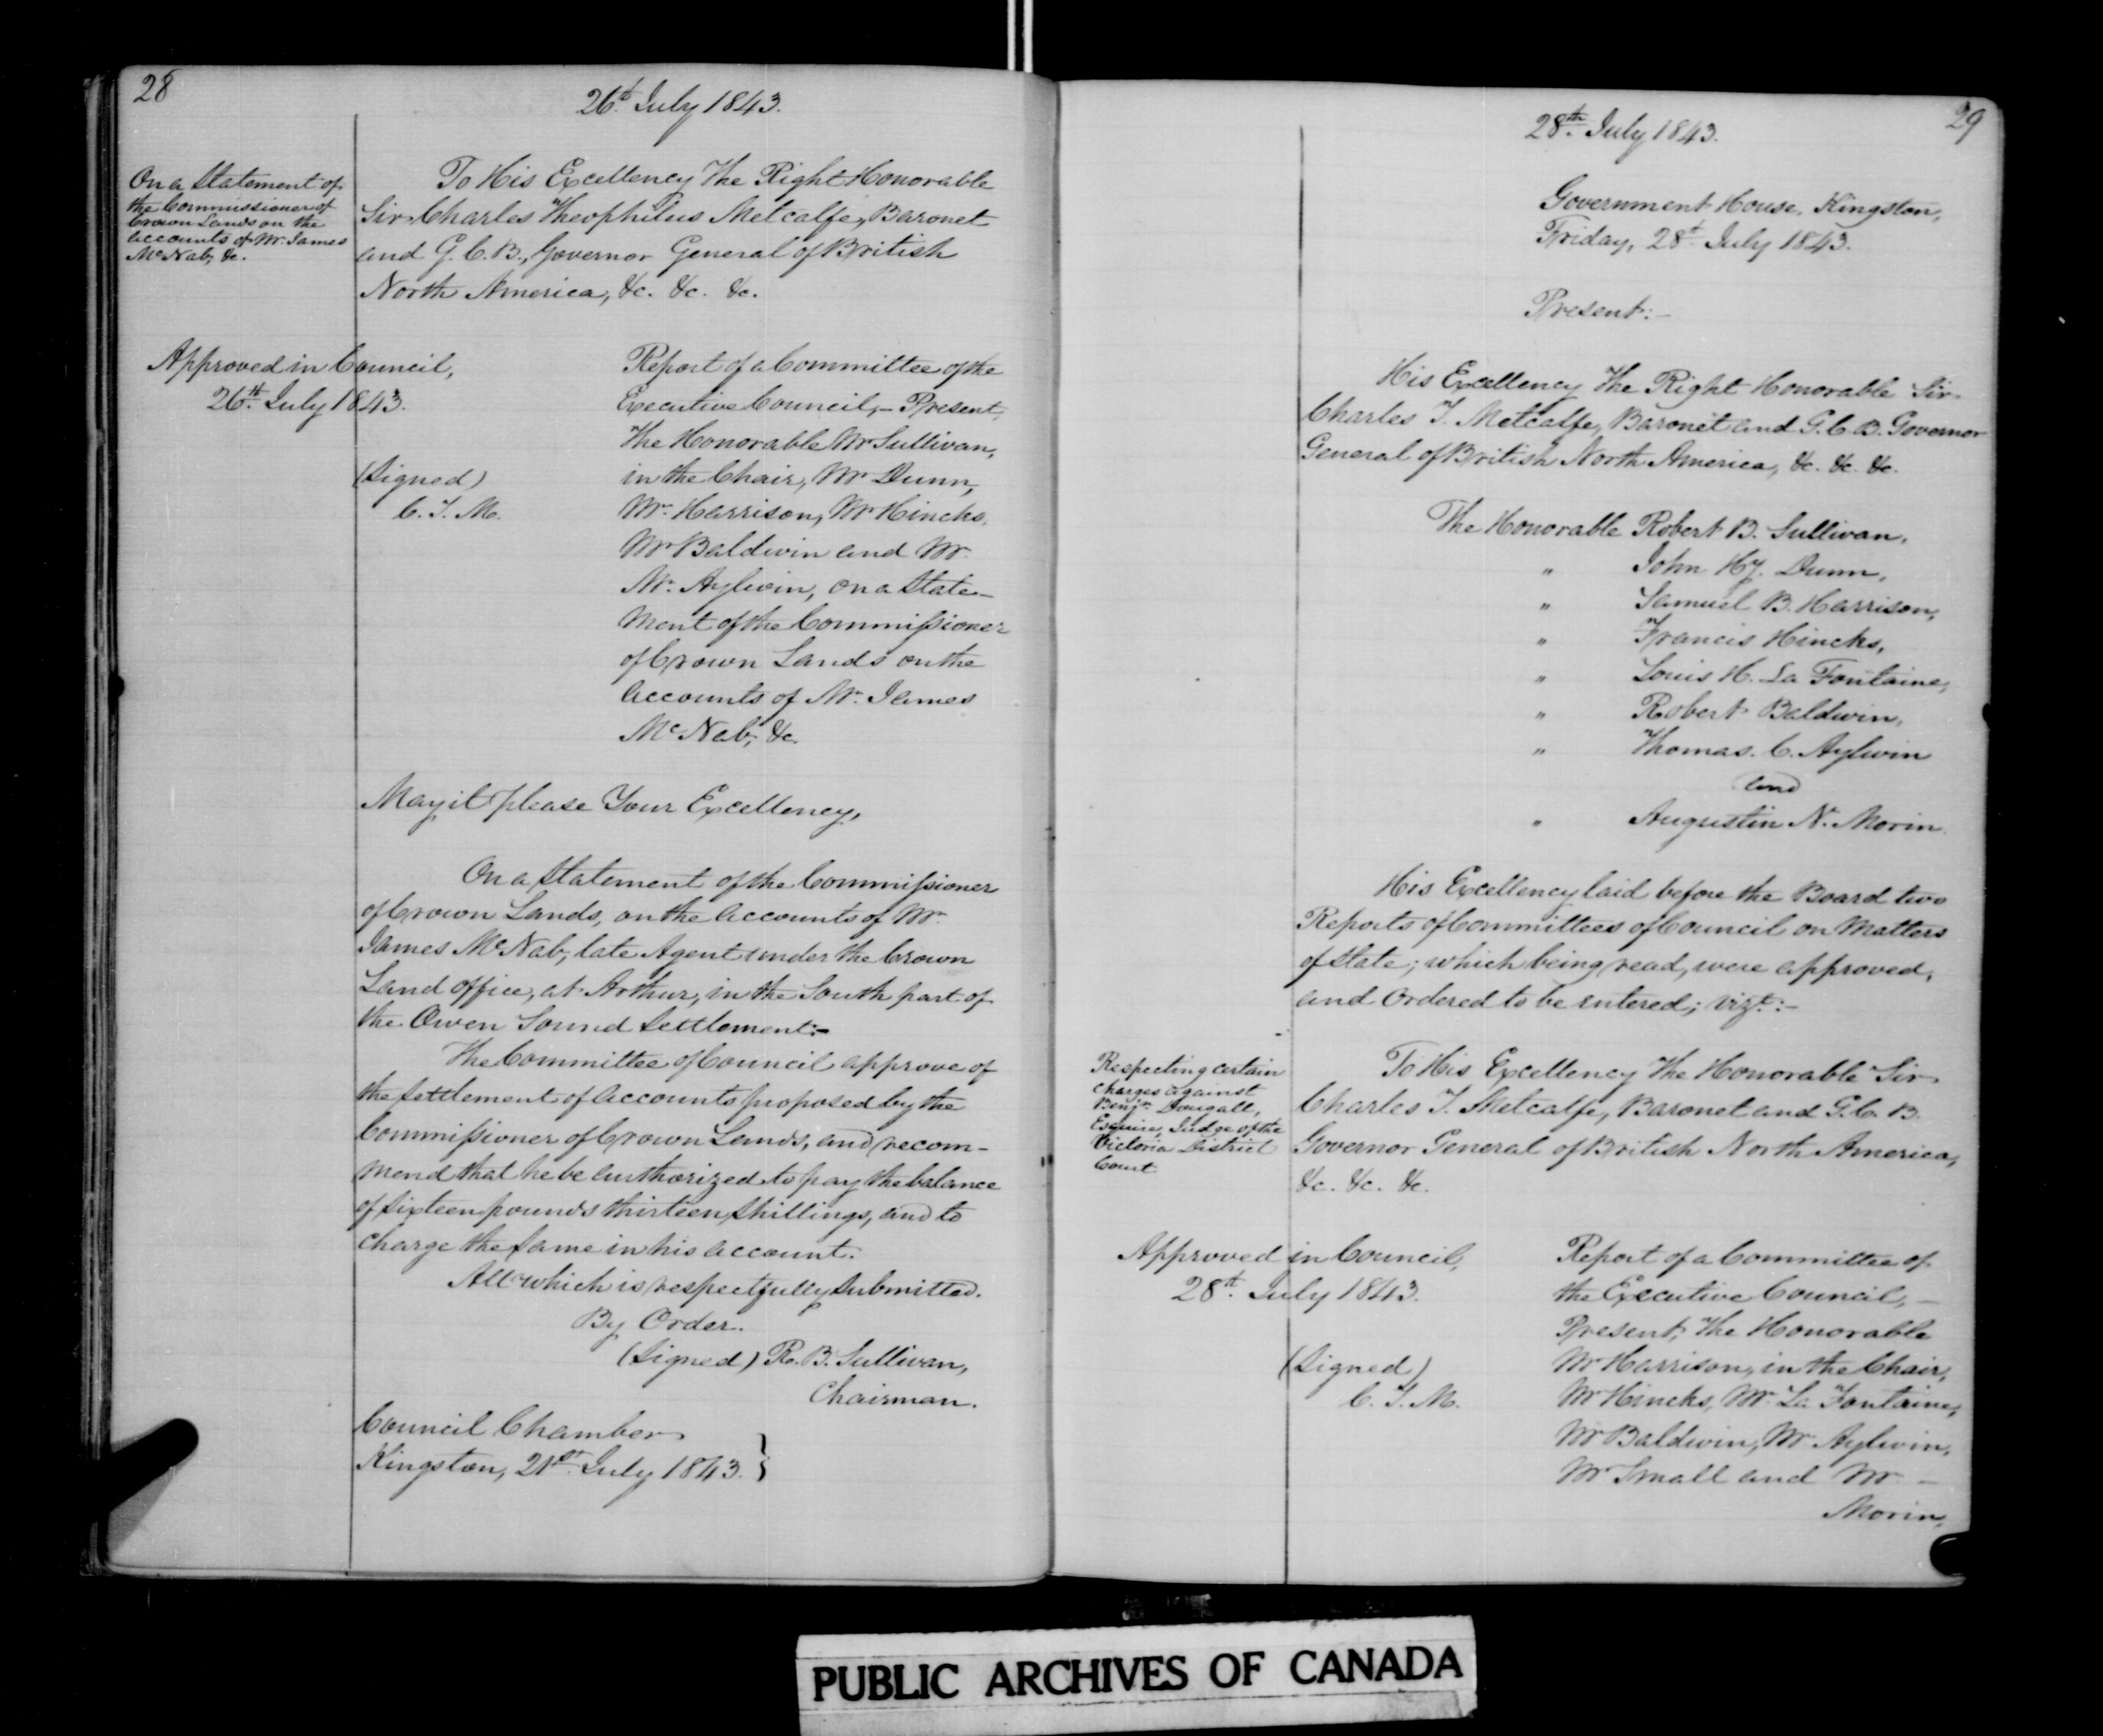 28
26th July 1843.
On a Statement of
the Commissioner of
Crown Lands on the
accounts of Mr. James
McNab, &c.
To His Excellency The Right Honorable
Sir Charles Theophilus Metcalfe, Baronet
and G.C.B., Governor General of British
North America, &c. &c. &c.
Approved in Council,
26th July 1843.
(Signed)
C. T. M.
Report of a Committee of the
Executive Council, - Present,
The Honorable Mr Sullivan,
in the Chair, Mr Dunn,
Mr. Harrison, Mr Hincks,
Mr Baldwin and Mr.
Mr. Aylwin, on a State-
ment of the Commissioner
of Crown Lands on the
accounts of Mr. James
McNab, &c.
May it please Your Excellency,
On a Statement of the Commissioner
of Crown Lands, on the accounts of Mr.
James McNab, late Agent under the Crown
Land office, at Arthur, in the South part of
the Owen Sound Settlement:-
The Committee of Council approve of
the settlement of accounts proposed by the
Commissioner of Crown Lands, and recom-
mend that he be authorized to pay the balance
of sixteen pounds thirteen shillings, and to
charge the same in his account.
All which is respectfully submitted.
By Order.
(Signed) R. B. Sullivan,
Chairman.
Council Chamber
Kingston, 21st July 1843. }
29
28th July 1843.
Government House, Kingston,
Friday, 28th July 1843.
Present:-
His Excellency The Right Honorable Sir
Charles T. Metcalfe, Baronet and G.C.B. Governor
General of British North America, &c. &c. &c.
The Honorable Robert B. Sullivan,
" John Hy. Dunn,
" Samuel B. Harrison,
" Francis Hincks,
" Louis H. La Fontaine,
" Robert Baldwin,
" Thomas. C. Aylwin
and
" Augustin N. Morin
His Excellency laid before the Board two
Reports of Committees of Council on Matters
of State; which being read, were approved,
and Ordered to be entered; vizt:-
Respecting certain
charges against
Benjn. Dougall,
Esquire, Judge of the
Victoria District
Court
To His Excellency The Honorable Sir
Charles T. Metcalfe, Baronet and G.C.B.
Governor General of British North America,
&c. &c. &c.
Approved in Council,
28th July 1843.
(Signed)
C. T. M.
Report of a Committee of
the Executive Council, -
Present, The Honorable
Mr Harrison, in the Chair,
Mr Hincks, Mr. La Fontaine,
Mr Baldwin, Mr Aylwin,
Mr Small and Mr. -
Morin,
PUBLIC ARCHIVES OF CANADA